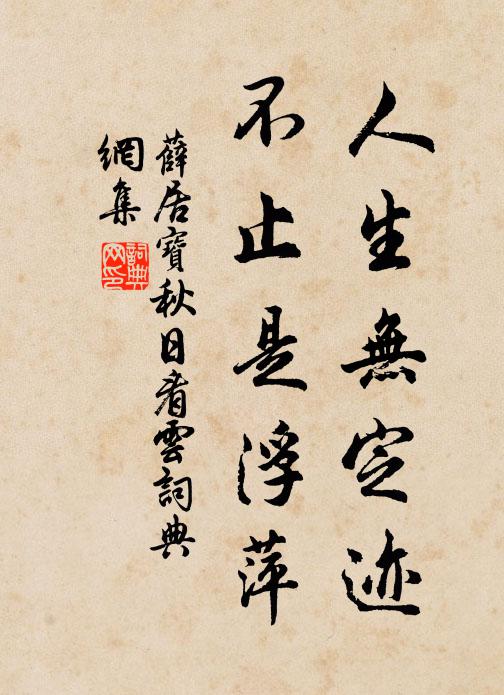 人生無定迹
不止是浮萍
薛居寶秋日看雲詞典
網集
詞典
网印